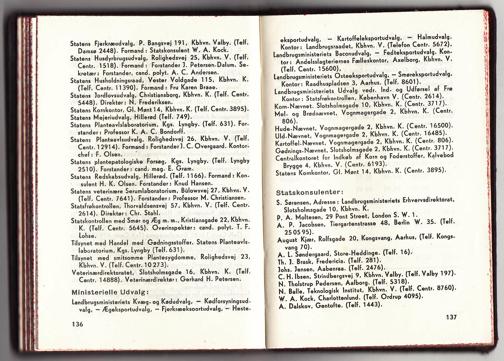 Statens Fjerkræudvalg, P. Bangsvej 191, Kbhvn. Valby. (Telf.
Damsø 2448). Formand: Statskonsulent W. A. Kock.
Statens Husdyrbrugsudvalg, Rolighedsvej 25, Kbhvn. V. (Telf.
Cent. 1518). Formand: Forstander J. Petersen-Dalum. Se-
kretær: Forstander, cand. polyt. A. C. Andersen.
Statens Husholdningsraad, Vester Voldgade 115, Kbhvn. K.
(Telf. Cent. 11390). Formand: Frk Karen Braae.
Statens Jordlovsudvalg, Christiansborg, Kbhvn. K. (Telf. Cent.
5448). Direktør: N. Frederiksen.
Statens Kornkontor, Gl. Mønt 14, Kbhvn. K. (Telf. Cent. 3895).
Statens Mejeriudvalg, Hillerød (Telf. 749).
Statens Planteavlslaboratorium, Kgs. Lyngby. (Telf. 631). For-
stander: Professor K. A. C. Bondorff.
Statens Planteavlsudvalg, Rolighedsvej 26, Kbhvn. V. (Telf.
Cent. 12914). Formand: Forstander J. C. Overgaard. Kontor-
chef: F. Olsen.
Statens plantepatologiske Forsøg, Kgs. Lyngby. (Telf. Lyngby
2510). Forstander: cand. mag. E. Gram.
Statens Redskabsudvalg, Hillerød. (Telf. 1166). Formand: Kon-
sulent H. K. Olsen. Forstander: Knud Hansen.
Statens veterinære Serumlaboratorium, Bülowsvej 27, Kbhvn. V.
(Telf. Cent. 7641). Forstander: Professor M. Christiansen.
Statsfrøkontrollen, Thorvaldsensvej 57, Kbhvn. V. (Telf. Cent.
2614). Direktør: Chr. Stahl.
Statskontrollen med Smør og Æg m. m., Kristiansgade 22, Kbhvn.
K. (Telf. Cent. 5645). Overinspektør: cand. polyt. T. F.
Lohse.
Tilsynet med Handel med Gødningsstoffer. Statens Planteavls-
laboratorium, Kgs. Lyngby (Telf. 631).
Tilsynet med smitsomme Plantesygdomme, Rolighedsvej 23,
Kbhvn. V. (Telf. Cent. 10 273).
Veterinærdirektoratet, Slotsholmsgade 16, Kbhvn. K. (Telf.
Cent. 14888). Veterinærdirektør: Gerhard H. Petersen.
Ministerielle Udvalg:
Landbrugsministeriets Kvæg- og Kødudvalg, — Kødforsyningsud-
valg, — Ægeksportudvalg, — Fjerkræeksportudvalg, — Heste-
136
eksportudvalg, — Kartoffeleksportudvalg, — Halmudvalg.
Kontor: Landbrugsraadet, Kbhvn. V. (Telefon Cent. 5672).
Landbrugsministeriets Baconudvalg, — Fedteksportudvalg. Kon-
tor: Andelsslagteriernes Fælleskontor, Axelborg, Kbhvn. V.
(Telf. Cent. 15600).
Landbrugsministeriets Osteeksportudvalg, — Smøreksportudvalg.
Kontor: Raadhuspladsen 3, Aarhus. (Telf. 8601).
Landbrugsministeriets Udvalg vedr. Ind- og Udførsel af Frø
Kontor: Statsfrøkontrollen, København V. (Cent. 2614).
Korn-Nævnet, Slotsholmsgade 10, Kbhvn. K. (Cent. 3717).
Mel- og Brødnævnet, Vognmagergade 2, Kbhvn. K. (Cent.
806).
Hude-Nævnet, Vognmagergade 2, Kbhvn. K. (Cent. 16500).
Uld-Nævnet, Vognmagergade 2, Kbhvn. K. (Cent. 16485).
Kartoffel-Nævnet, Vognmagergade 2, Kbhvn. K. (Cent. 806).
Gødnings-Nævnet, Slotsholmsgade 10, Kbhvn. K. (Cent. 3717).
Centralkontoret for Indkøb af Korn og Foderstoffer, Kalvebod
Brygge 4, Kbhvn. V. (Cent. 6193).
Statens Kornkontor, Gl. Mønt 14, Kbhvn. K. (Cent. 3895).
Statskonsulenter:
S. Sørensen, Adresse: Landbrugsministeriets Erhvervsdirektorat,
Slotsholmsgade 10, Kbhvn. K.
P. A. Moltesen, 29 Pont Street, London S. W. 1.
A. P. Jacobsen, Tiergartenstrasse 48, Berlin W. 35. (Telf.
25 05 95).
August Kjær, Rolfsgade 20, Kongsvang, Aarhus. (Telf. Kongs-
vang 70).
A. L. Søndergaard, Store-Heddinge. (Telf. 16).
Th. J. Brask, Fredericia. (Telf. 281).
Johs. Jensen, Aabenraa. (Telf. 2476).
C. H. Ibsen, Strindbergsvej 9, Kbhvn. Valby. (Telf. Valby 197).
N. Tholstrup Pedersen, Aalborg. (Telf. 5318).
N. Balle, Teknologisk Institut, Kbhvn. V. (Telf. Cent. 8760).
W. A. Kock, Charlottenlund. (Telf. Ordrup 4095).
A. Dalskov, Gentofte. (Telf. 1443).
137